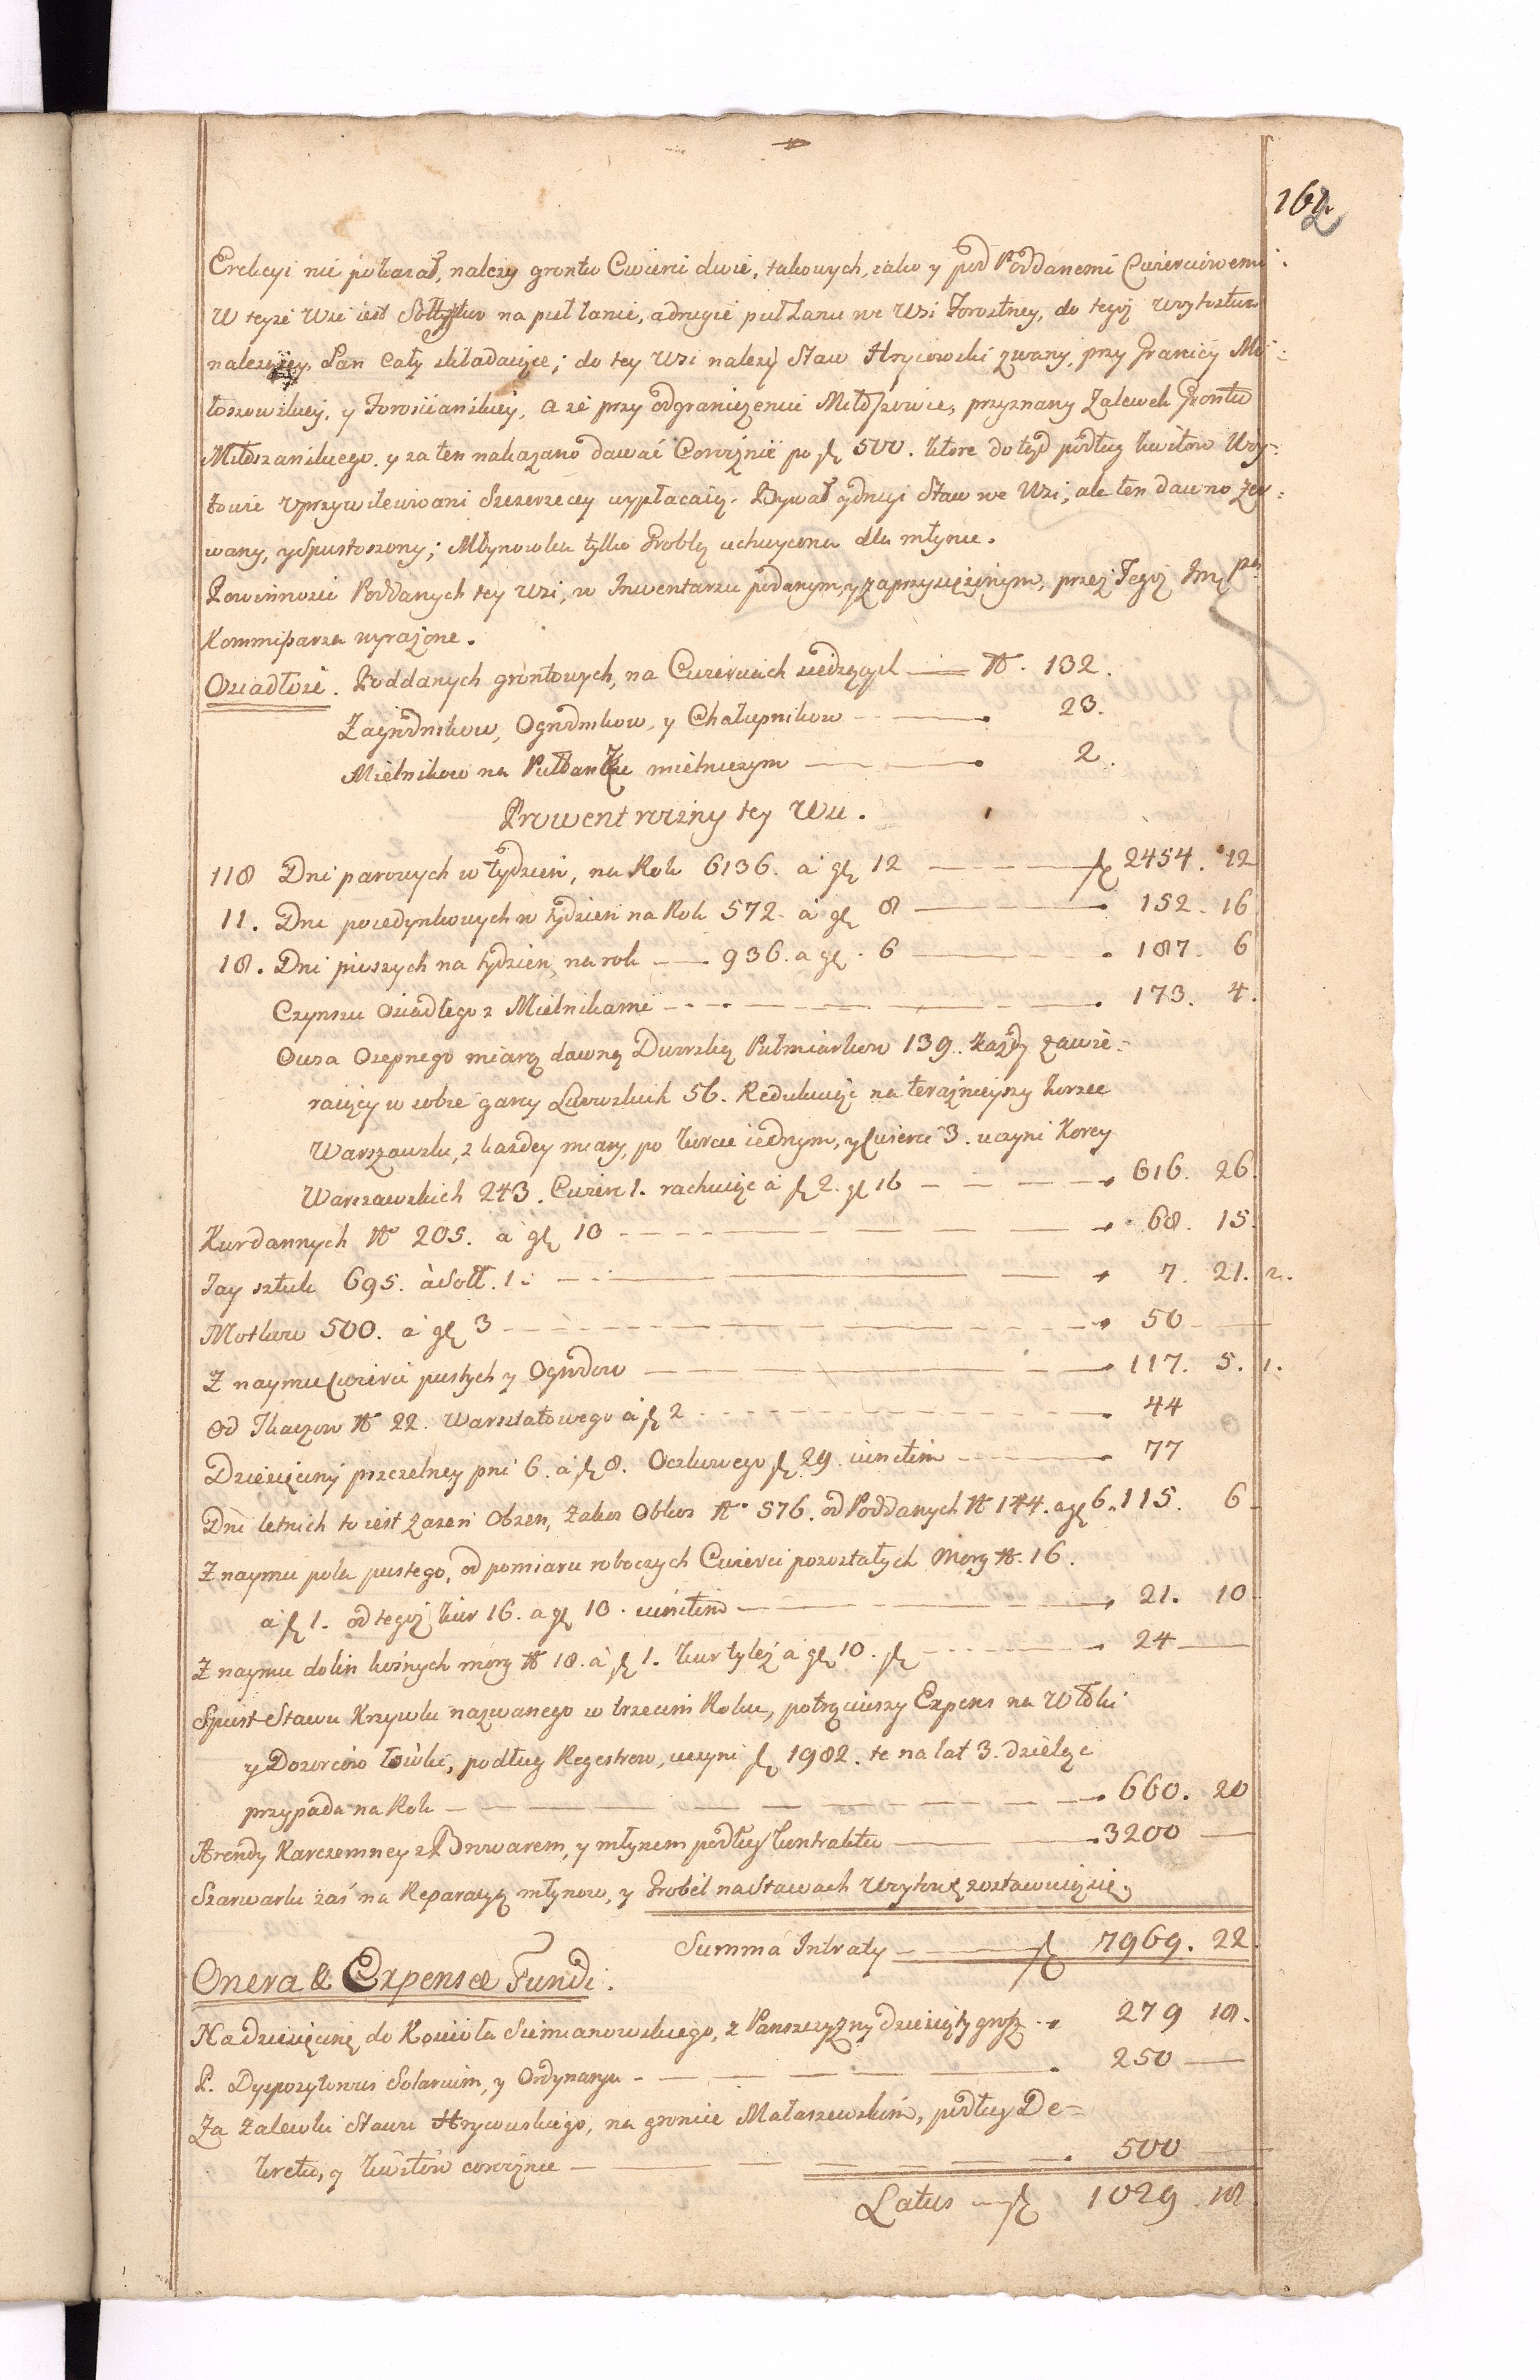 162
Erekcyi nie pokazał, należy grontu Cwierci dwie, takowych, iako y pod Poddanemi Cwierciowemi.
W teyże Wsi iest Sołtystwo na puł łanie, a drugie puł Łanu we Wsi Forostney, do tegoż
należącey, Łan Cały składaiące; do tey Wsi należy Staw Hrycowski zwany, przy Granicy Mi-
łoszowskiey, y Forościańskiey, a że przy odgraniczeniu Miłoszowic, przyznany Zalewek Grontu
Miłoszańskiego, y za ten nakazano dawać Corocznie po fl 500. które dotąd podług kwitow Wóy-
towie uprzywilewiowani Szczerzeccy wypłacaią. Bywał y drugi Staw we Wsi, ale ten dawno zer-
wany, y Spustoszony; Młynowka tylko Groblą uchwycona dla młynu.
Powinności Poddanych tey Wsi, w Inwentarzu podanym, y zaprzysiężonym, przez Tegoż Imp
Kommissarza wyrażone.
Osiadłość. Poddanych grontowych, na Cwierciach siedzących — № 132.
Zagrodnikow, Ogrodnikow, y Chałupnikow — 23.
Mielnikow na Pułłanku mielniczym — 2.
Prowent roczny tey Wsi.
118 Dni parowych w tydzień, na Rok 6136. à gl 12 — fl 2454. 12
11. Dni poiedynkowych w tydzień na Rok 572. à gl 8 — 152. 16
18. Dni pieszych na tydzień, na rok — 936. a gl. 6 — 187. 6
Czynszu Osiadłego z Mielnikami — 173. 4.
Owsa Osepnego miarą dawną Dworską Pułmiarkow 139. każdy zawie-
raiący w sobie garcy Lwowskich 56. Redukuiąc na teraźnieyszy korzec
Warszawski, z każdey miary, po korcu iednym, y Cwierci 3. uczyni Korcy
Warszawskich 243. Cwierć 1. rachuiąc à fl 2. gl 16 — 616. 26.
Kur dannych № 205. à gl 10 — 68. 15.
Jay sztuk 695. à Soll. 1. — 7. 21. 2.
Motkow 500. à gl 3 — 50 —
Z naymu Cwierci pustych y Ogrodow — 117. 5. 1.
Od Tkaczow № 22. Warsztatowego à fl 2 — 44
Dziesięciny pszczelney pni 6. à fl 8. Oczkowego fl 29. iunctim — 77
Dni letnich to iest Zażen Obżen, Zakos Obkos № 576. od Poddanych № 144. a gl 6. 115. 6
Z naymu pola pustego, od pomiaru roboczych Cwierci pozostałych Morg № 16.
à fl 1. od tegoż kur 16. a gl 10. iunctim — 21. 10
Z naymu dolin kośnych morg № 18. à fl 1. kur tyleż à gl 10. fl — 24 —
Spust Stawu Krzywku nazwanego w trzecim Roku, potrąciwszy Expens na Włoki
y Dozorcow łowki, podług Regestrow, uczyni fl 1982. te na lat 3. dzieląc
przypada na Rok — 660. 20
Arendy Karczemney z Browarem, y młynem podług kontraktu — 3200 —
Szarwarku zaś na Reparacyą młynow, y Grobel na Stawach zostawuię się.
Summa Intraty — fl 7969. 22.
Onera & Expensæ Fundi.
Na dziesięcinę do Kościoła Siemianowskiego, z Panszczyzny dziesiąty grosz — 279 18.
P. Dyspozytorowi Solarium, y Ordynaryi — 250 —
Za Zalewku Stawu Hrycowskiego, na groncie Małaszewskim, podług De-
kretu, y kwitow corocznie — 500 —
Latus — fl 1029. 18